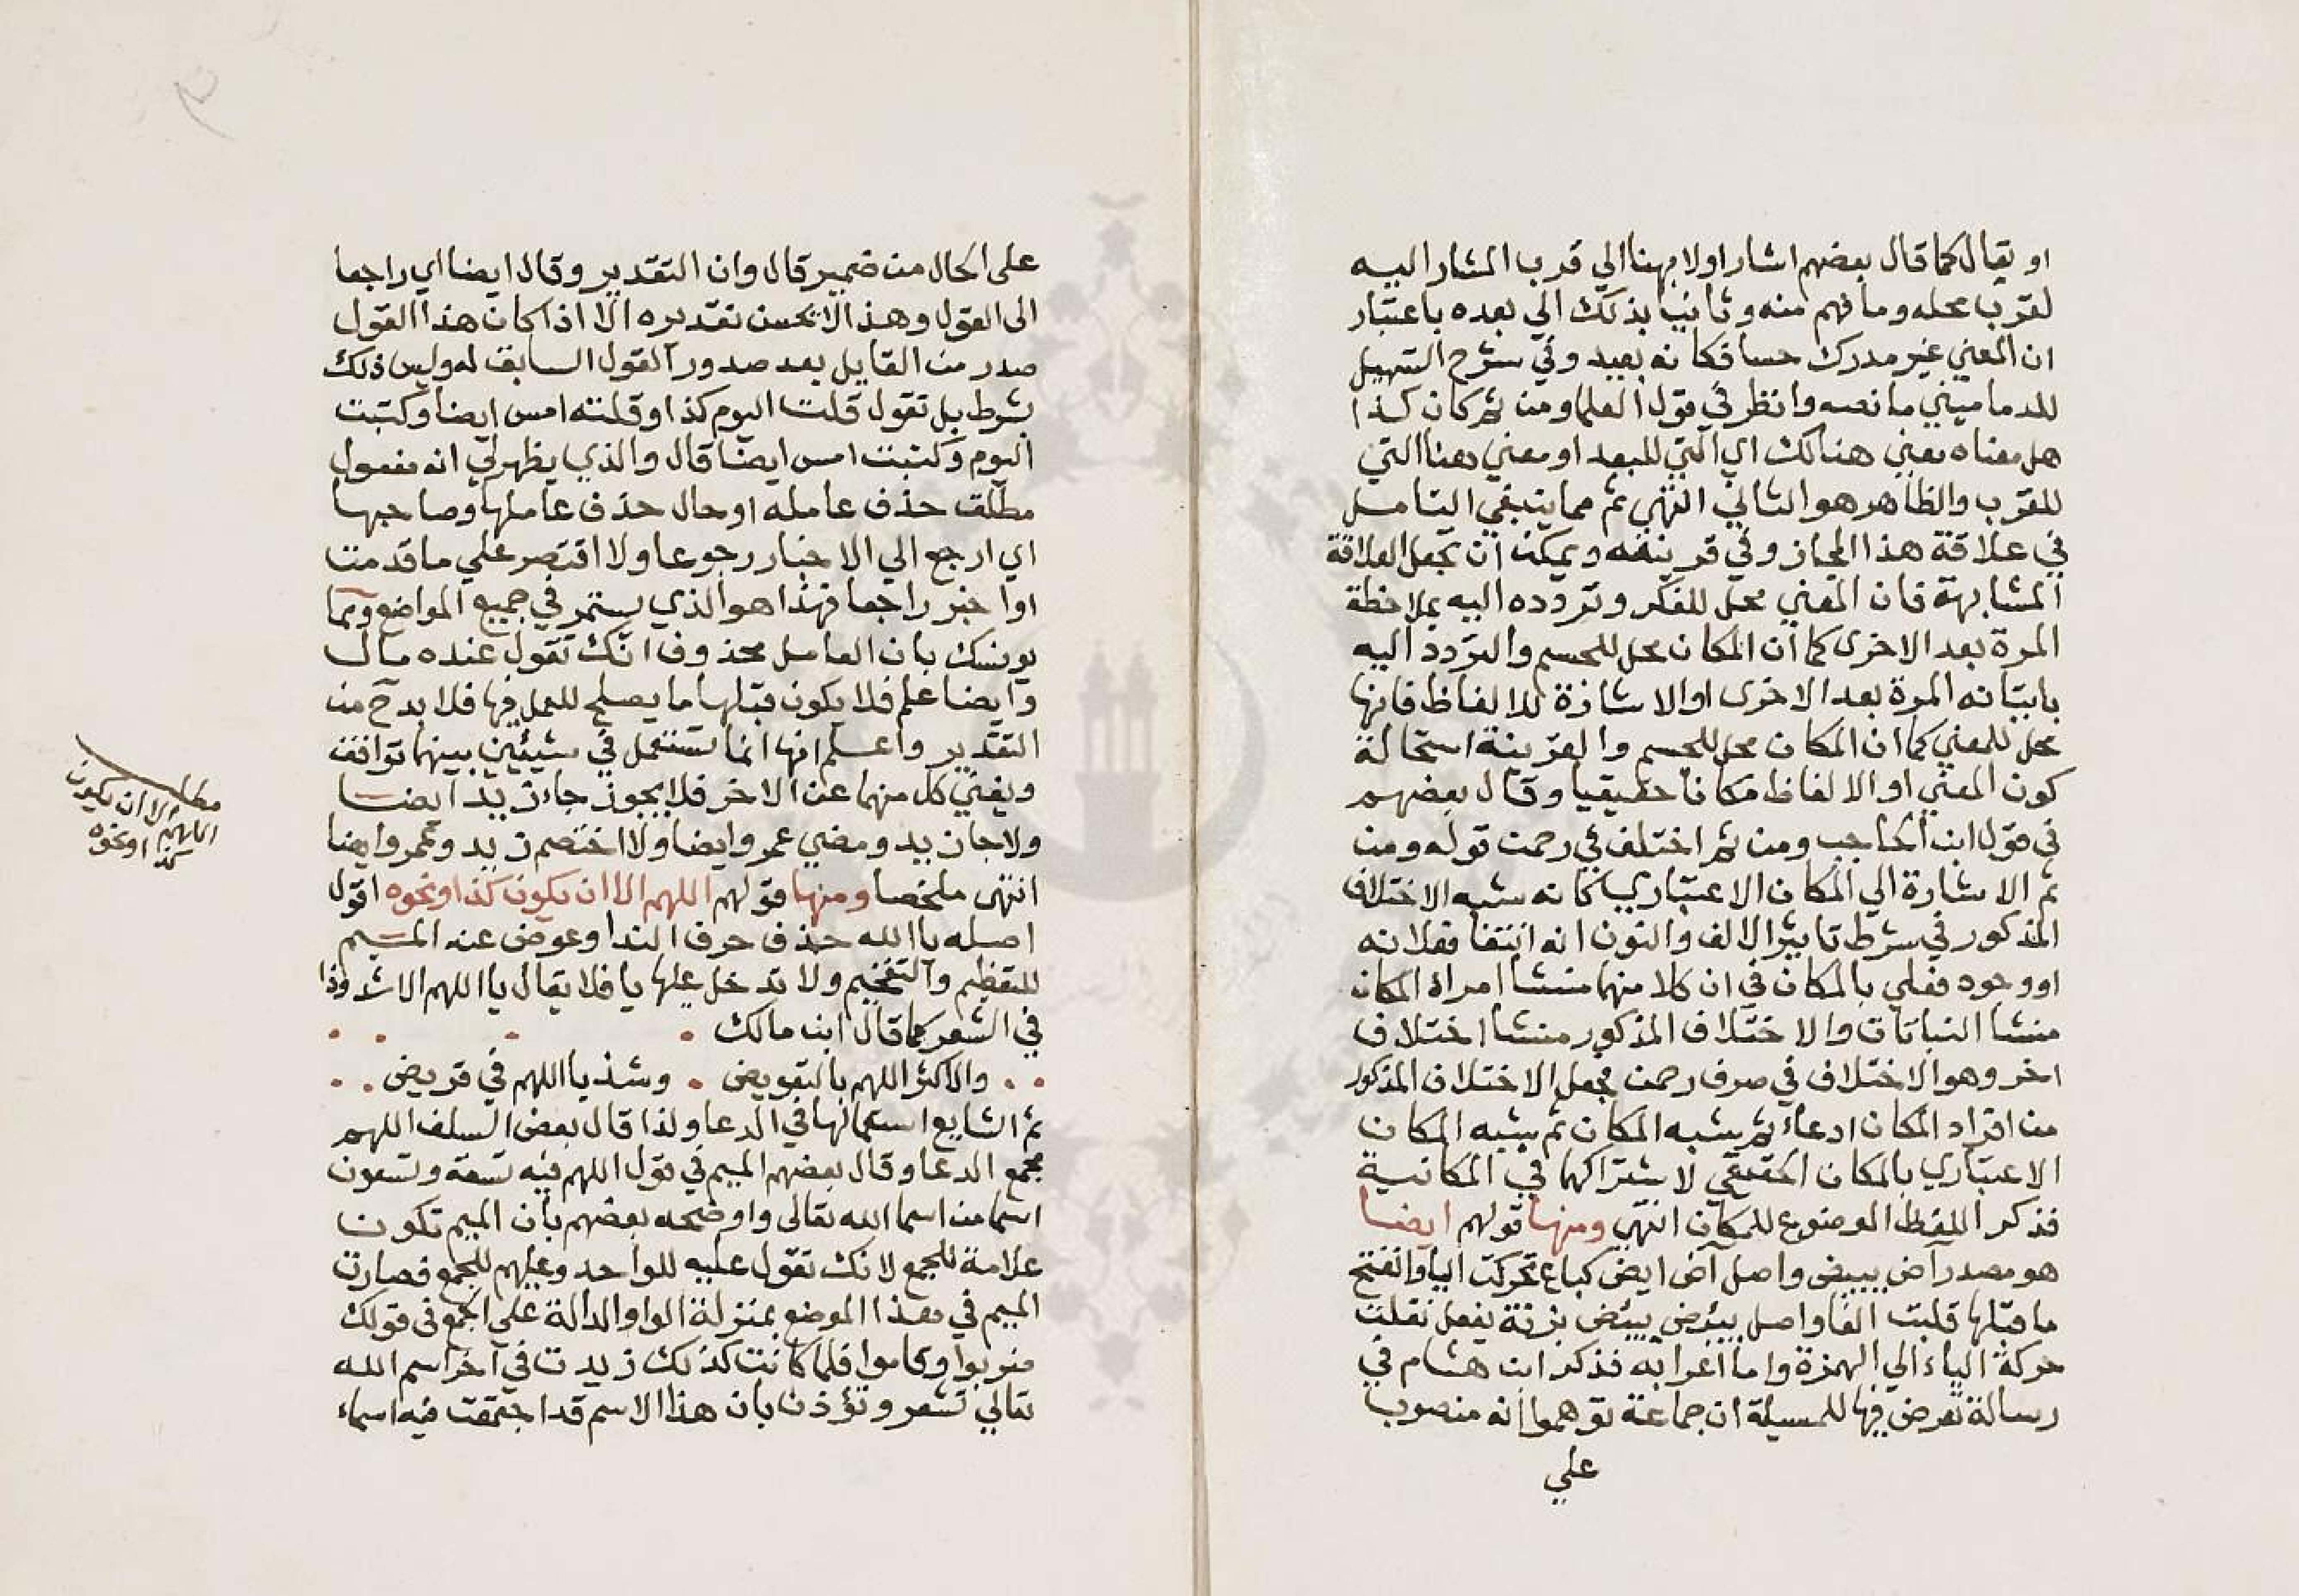 او يقال كما قال بعضهم اشار اولا بهنا الي قرب المشار اليه
لقرب محله وما فهم منه وثانيا بذلك الي بعده باعتبار
ان المعني غير مدرك حسا فكانه بعيد وفي شرح التسهيل
للدماميني ما نصه وانظر في قول العلما ومن ثم كان كذا
هل معناه معني هنالك اي التي للبعد او معني هنا التي
للقرب والظاهر هو الثاني انتهي ثم مما ينبغي التامل
في علاقة هذا المجاز وفي قرينته ويمكن ان تجعل العلاقة
المشابهة فان المعني محل للفكر وتردده اليه بملاحظة
المرة بعد الاخرى كما ان المكان محل للجسم والتردد اليه
باتيانه المرة بعد الاخرى او الاشارة للالفاظ فانها
محل للمعني كما ان المكان محل للجسم والقرينة استحالة
كون المعني او الالفاظ مكانا حقيقيا وقال بعضهم
في قول ابن الحاجب ومن ثم اختلف في رحمن قوله ومن
ثم الاشارة الي المكان الاعتباري كانه شبه الاختلاف
المذكور في شرط تاثير الالف والنون انه انتفا فعلانه
او وجود فعلي بالمكان في ان كلا منهما منشا امر اذ المكان
منشا النباتات والاختلاف المذكور منشا اختلاف
اخر وهو الاختلاف في صرف رحمن فجعل الاختلاف المذكور
من افراد المكان ادعاء ثم يشبه المكان ثم يشبه المكان
الاعتباري بالمكان الحقيقي لاشتراكهما في المكانية
فذكر اللفظ الموضوع للمكان انتهي ومنها قولهم ايضا
هو مصدر آض ييبيض واصل آض ايض كباع تحركت اليا وانفتح
ما قبلها قلبت الفا واصل يبئض بزنة يفعل نقلت
حركة الياء الي الهمزة واما اعرابه فذكر ابن هشام في
رسالة تعرض فيها للمسيلة ان جماعة توهموا انه منصوب
علي
على الحال من ضمير قال وان التقدير وقال ايضا اي راجعا
الى القول وهذا لا يحسن تقديره الا اذا كان هذا القول
صدر من القايل بعد صدور القول السابق له وليس ذلك
بشرط بل تقول قلت اليوم كذا وقلته امس ايضا وكتبت
اليوم وكتبت امس ايضا قال والذي يظهر لي انه مفعول
مطلق حذف عامله او حال حذف عاملها وصاحبها
اي ارجع الي الاخبار رجوعا ولا اقتصر علي ما قدمت
او اخبر راجعا فهذا هو الذي يستمر في جميع المواضع ومما
يونسك بان العامل محذوف انك تقول عنده مال
وايضا علم فلا يكون قبلها ما يصلح للعمل فيها فلا بد ح من
التقدير واعلم انها انما تستعمل في شيئين بينهما توافق
ويغني كل منهما عن الاخر فلا يجوز جاء زيد ايضا
ولا جا زيد ومضي عمرو ايضا ولا اختصم زيد وعمرو ايضا
انتهى ملخصا ومنها قولهم اللهم الا ان يكون كذا ونحوه اقول
اصله يا الله حذف حرف الندا وعوض عنه الميم
للتعظيم والتفخيم ولا تدخل عليها يا فلا يقال يا اللهم الا شذوذا
في الشعر كما قال ابن مالك
والاكثر اللهم بالتعويض • وشذ يا اللهم في قريض
ثم الشايع استعمالها في الدعا ولذا قال بعض السلف اللهم
مجمع الدعا وقال بعضهم الميم في قول اللهم فيه تسعة وتسعون
اسما من اسما الله تعالى واوضحه بعضهم بان الميم تكون
علامة للجمع لانك تقول عليه للواحد وعليهم للجمع فصارت
الميم في هذا الموضع بمنزلة الواو الدالة علي الجمع في قولك
ضربوا وقاموا فلما كانت كذلك زيدت في آخر اسم الله
تعالي تشعر وتؤذن بان هذا الاسم قد اجتمعت فيه اسماء
مطلب
اللهم الا ان يكون
كذا ونحوه